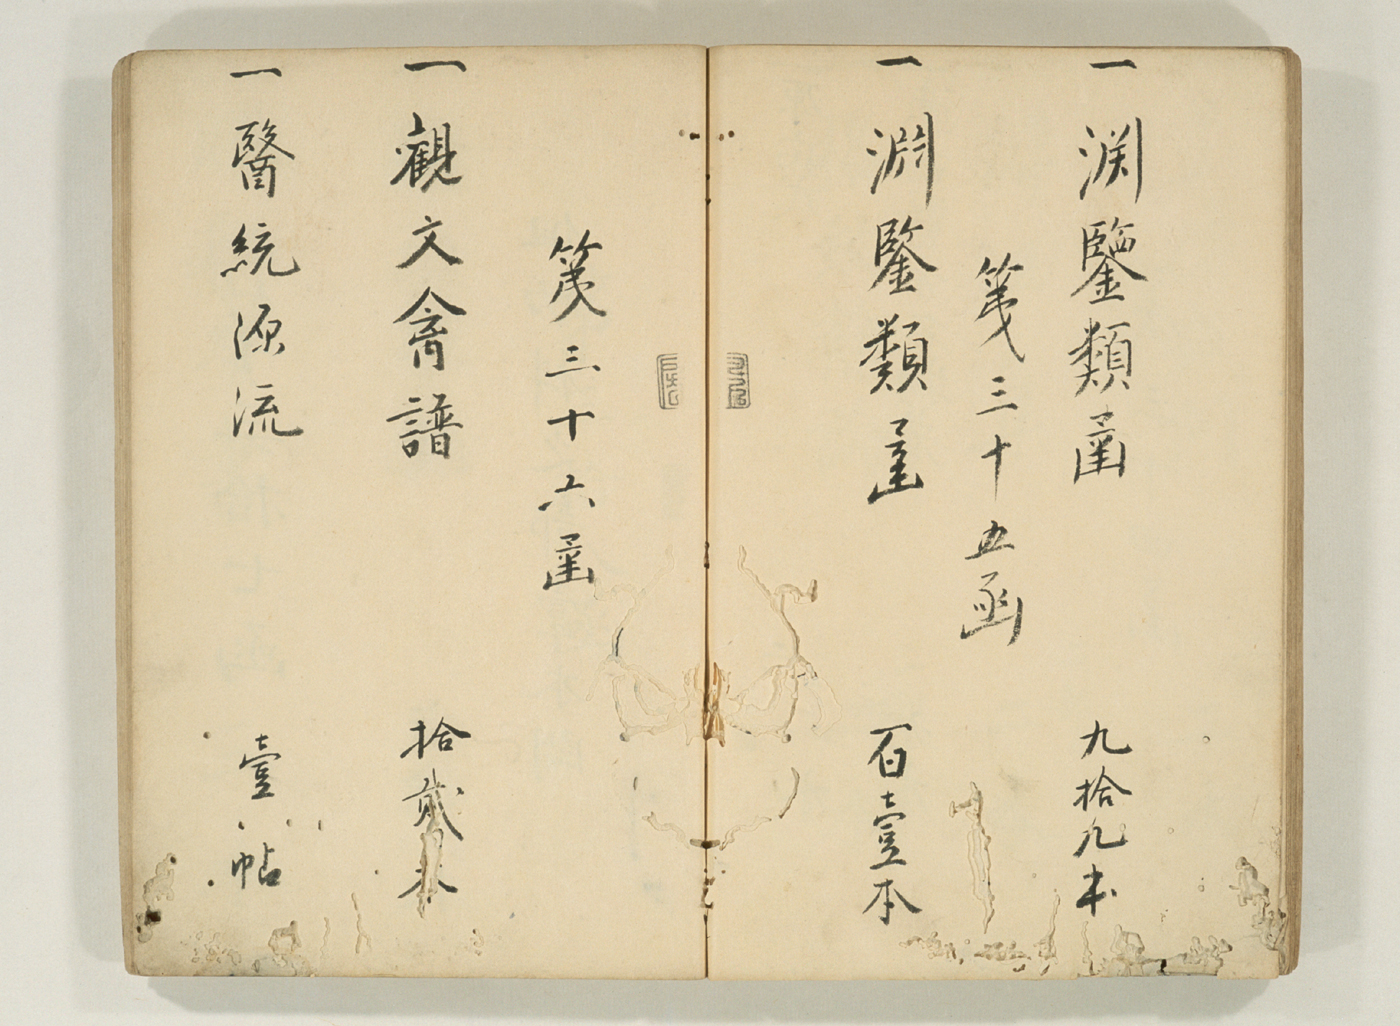 一 渕鑒類凾 九拾九本
箋三十五函
一 淵鑒類凾 百壹本
箋三十六凾
一 觀文禽譜 拾貳本
一 醫統源流 壹帖